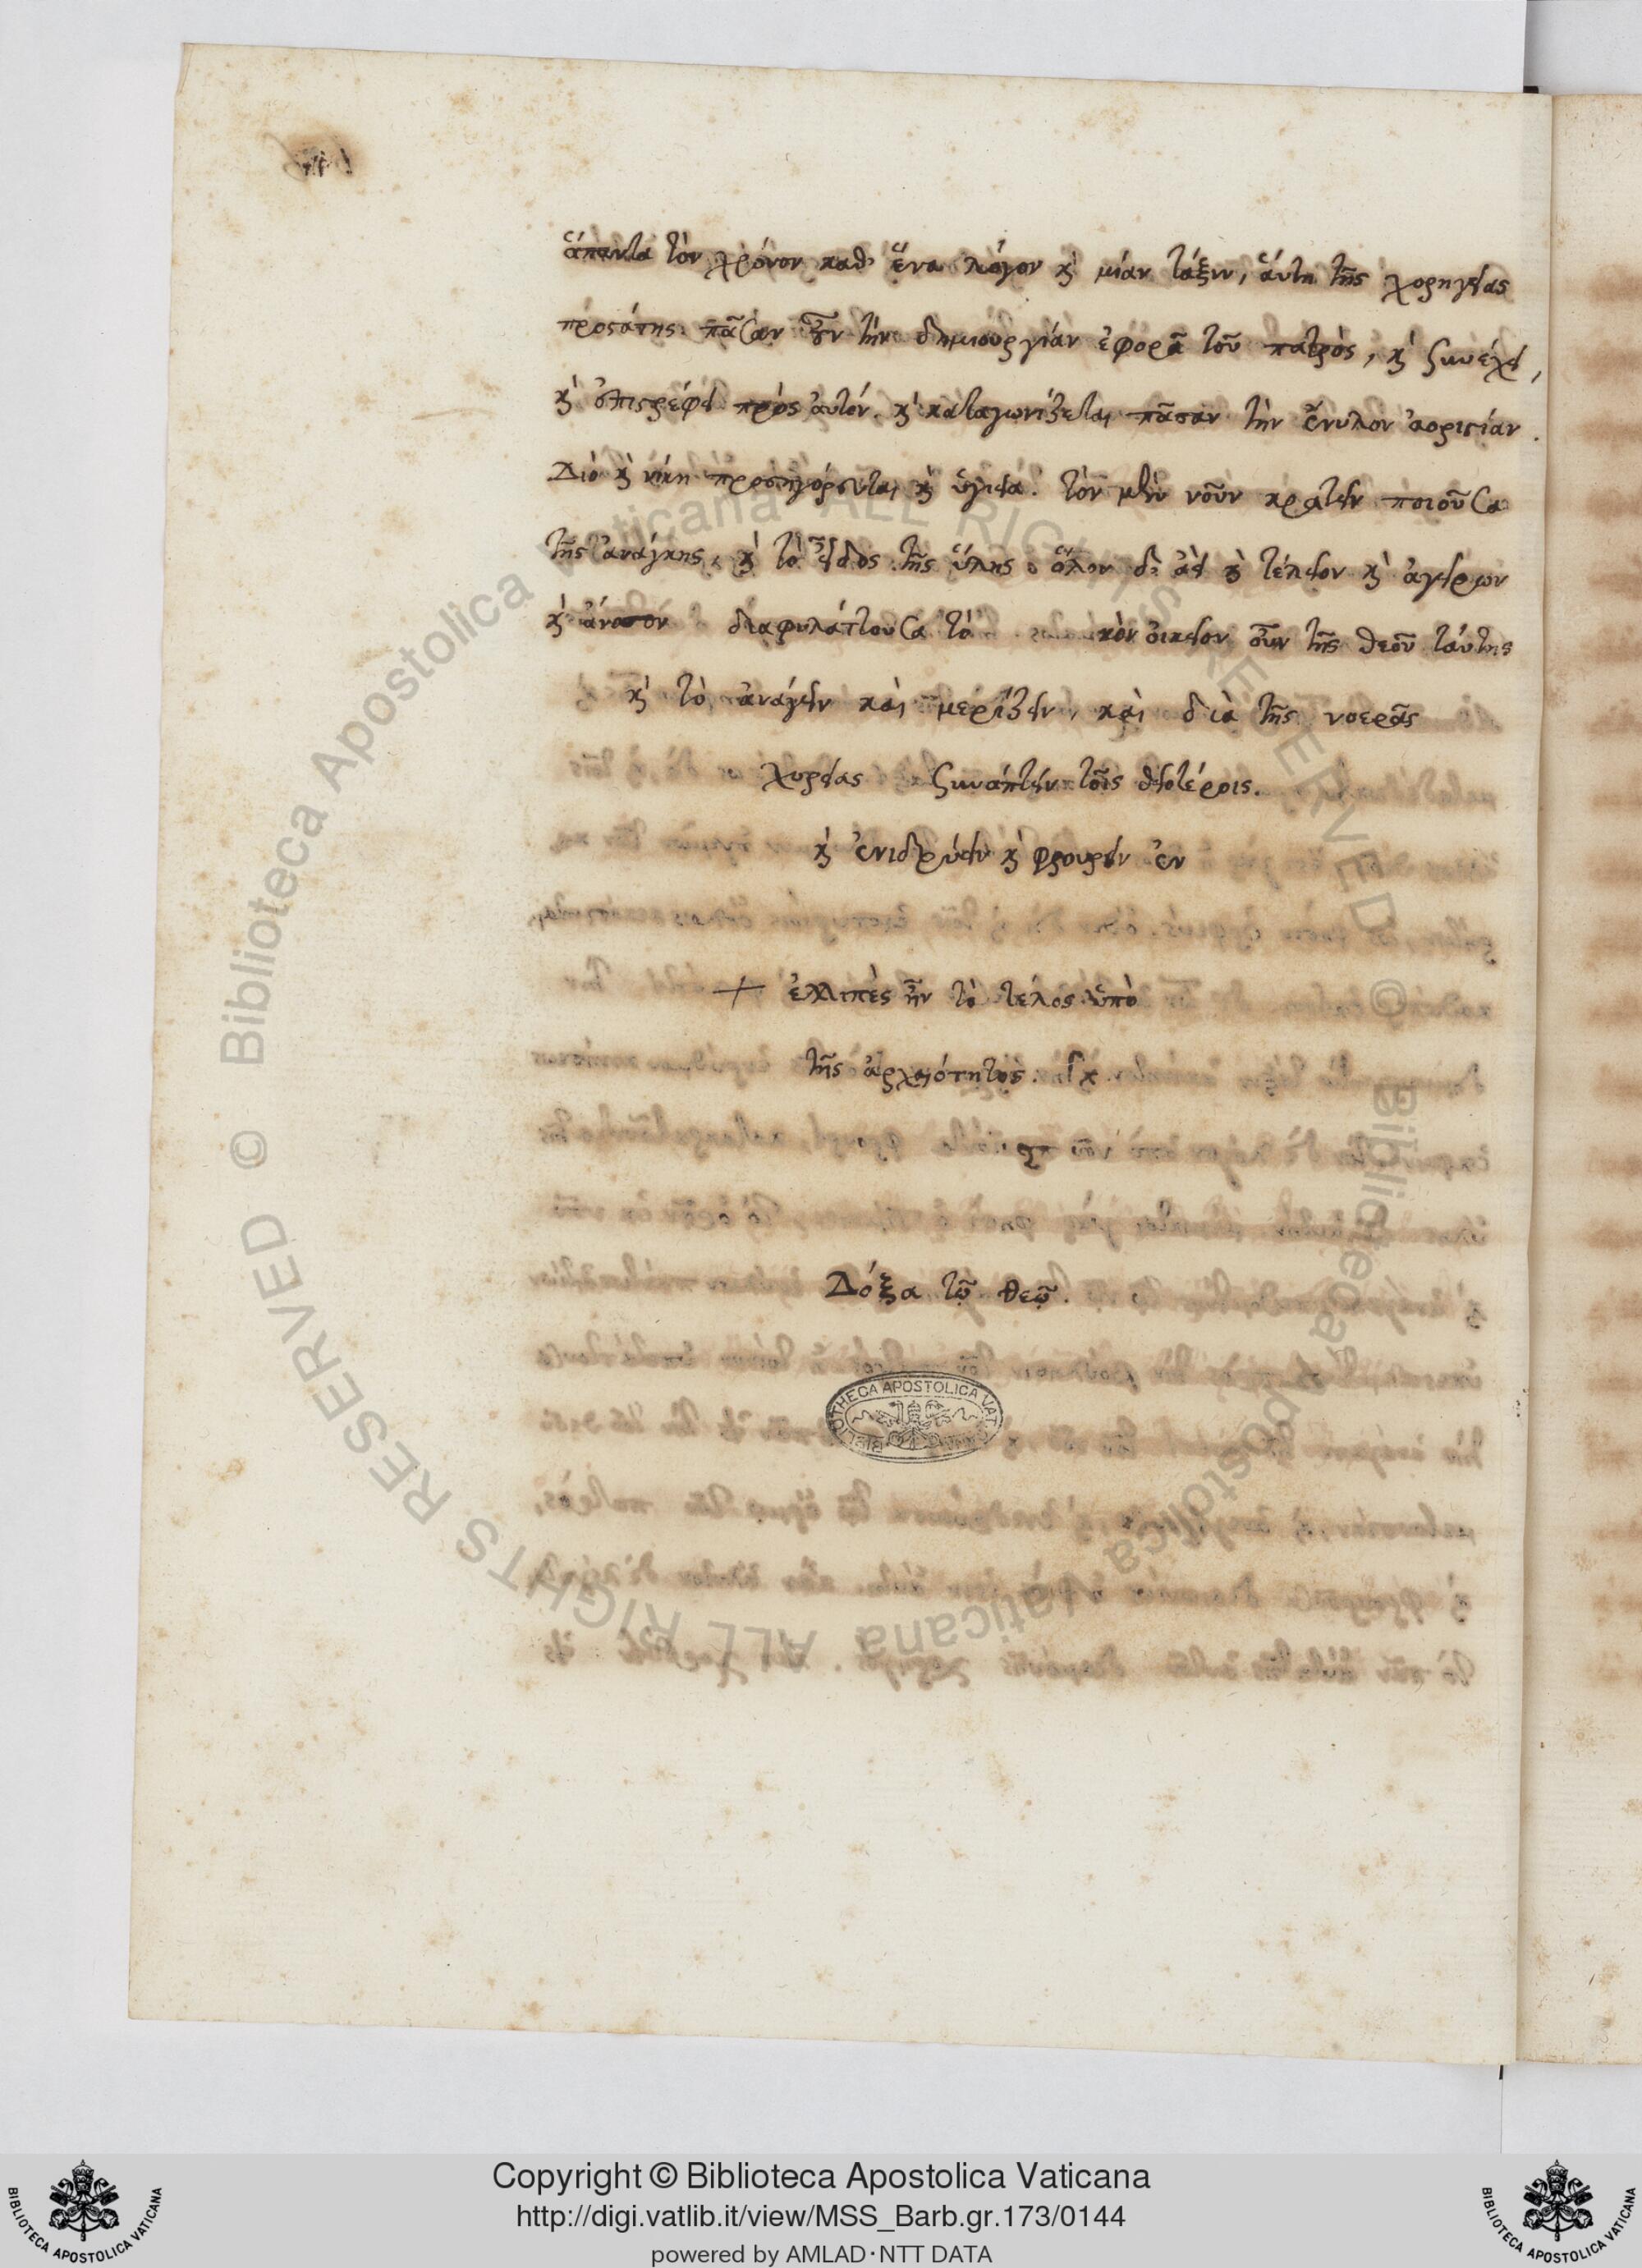 ἅπαντα τὸν χρόνον καθ' ἕνα λόγον κ̀ μίαν τάξιν, αὕτη τῆς χορηγείας
προστάτης. πᾶσαν οὖν τὴν δημιουργίαν ἐφορᾷ τοῦ πατρὸς, κ̀ συνέχει,
κ̀ ἐπιστρέφει πρὸς αὐτόν. κ̀ καταγωνίζεται πᾶσαν τὴν ἔνυλον ἀοριστίαν.
Διὸ κ̀ νίκη προσηγόρευται κ̀ ὑγιεία. τὸν μὲν νοῦν κρατεῖν ποιοῦσα
τῆς ἀνάγκης, κ̀ τὸ εἶδος τῆς ὕλης· ὅλον δὲ ἀεὶ κ̀ τέλειον κ̀ ἀγείρων
κ̀ ἄνοσον διαφυλάττουσα τὸ κὸν οἰκεῖον οὖν τῆς θεοῦ ταύτης
κ̀ τὸ ἀνάγειν καὶ μερίζειν, καὶ διὰ τῆς νοερᾶς
χορείας συνάπτειν τοῖς θειοτέροις.
κ̀ ἐνιδρύειν κ̀ φρουρεῖν ἐν
+ ἐλλιπὲς ἦν τὸ τέλος ὑπὸ
τῆς ἀρχαιότητος.
Δόξα τῷ θεῷ.
BIBLIOTHECA APOSTOLICA VATICANA
© Biblioteca Apostolica Vaticana ALL RIGHTS RESERVED
© Biblioteca Apostolica Vaticana ALL RIGHTS RESERVED
Copyright © Biblioteca Apostolica Vaticana
http://digi.vatlib.it/view/MSS_Barb.gr.173/0144
powered by AMLAD·NTT DATA
BIBLIOTECA APOSTOLICA VATICANA
BIBLIOTECA APOSTOLICA VATICANA